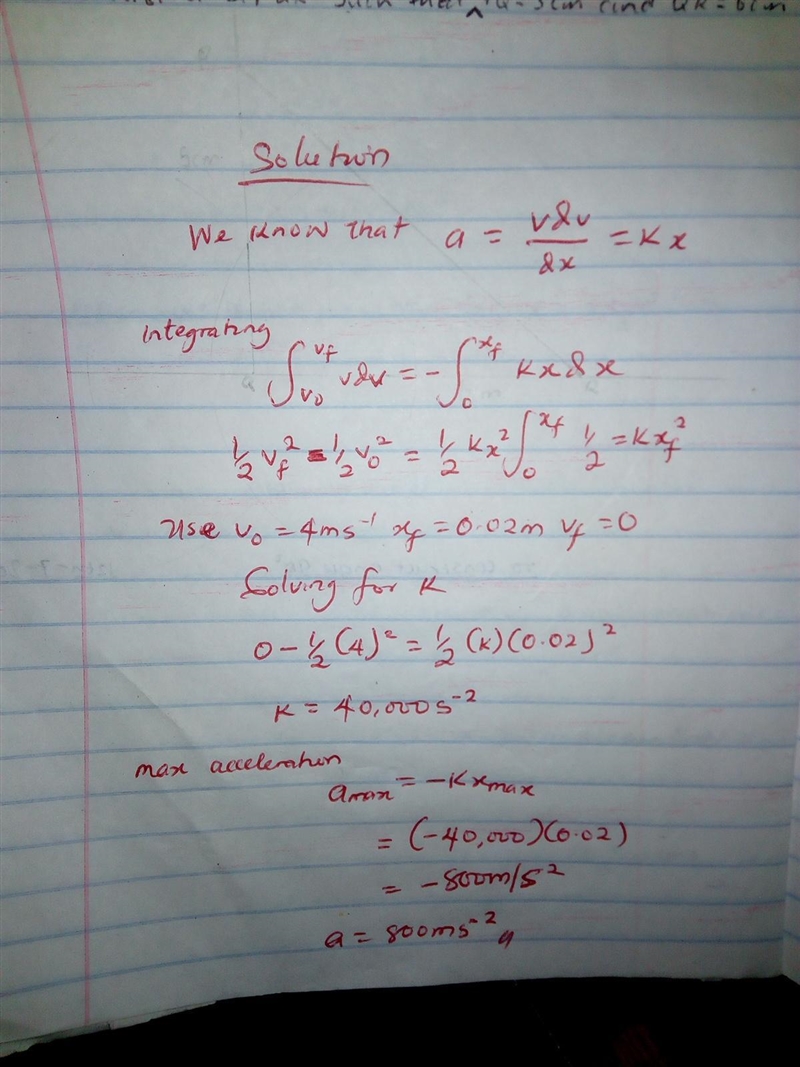 such that 
Solution
We know that a = vdv/dx = Kx
integrating
∫_{v₀}^{v_f} vdv = -∫_0^{x_f} Kx dx
½ v_f² - ½ v₀² = ½ Kx² ∫_0^{x_f} ½ = Kx_f²
Use v₀ = 4ms⁻¹ x_f = 0.02m v_f = 0
Solving for K
0 - ½ (4)² = ½ (K)(0.02)²
K = 40,000s⁻²
max acceleration
a_max = -Kx_max
= (-40,000)(0.02)
= -800m/s²
a = 800ms⁻²